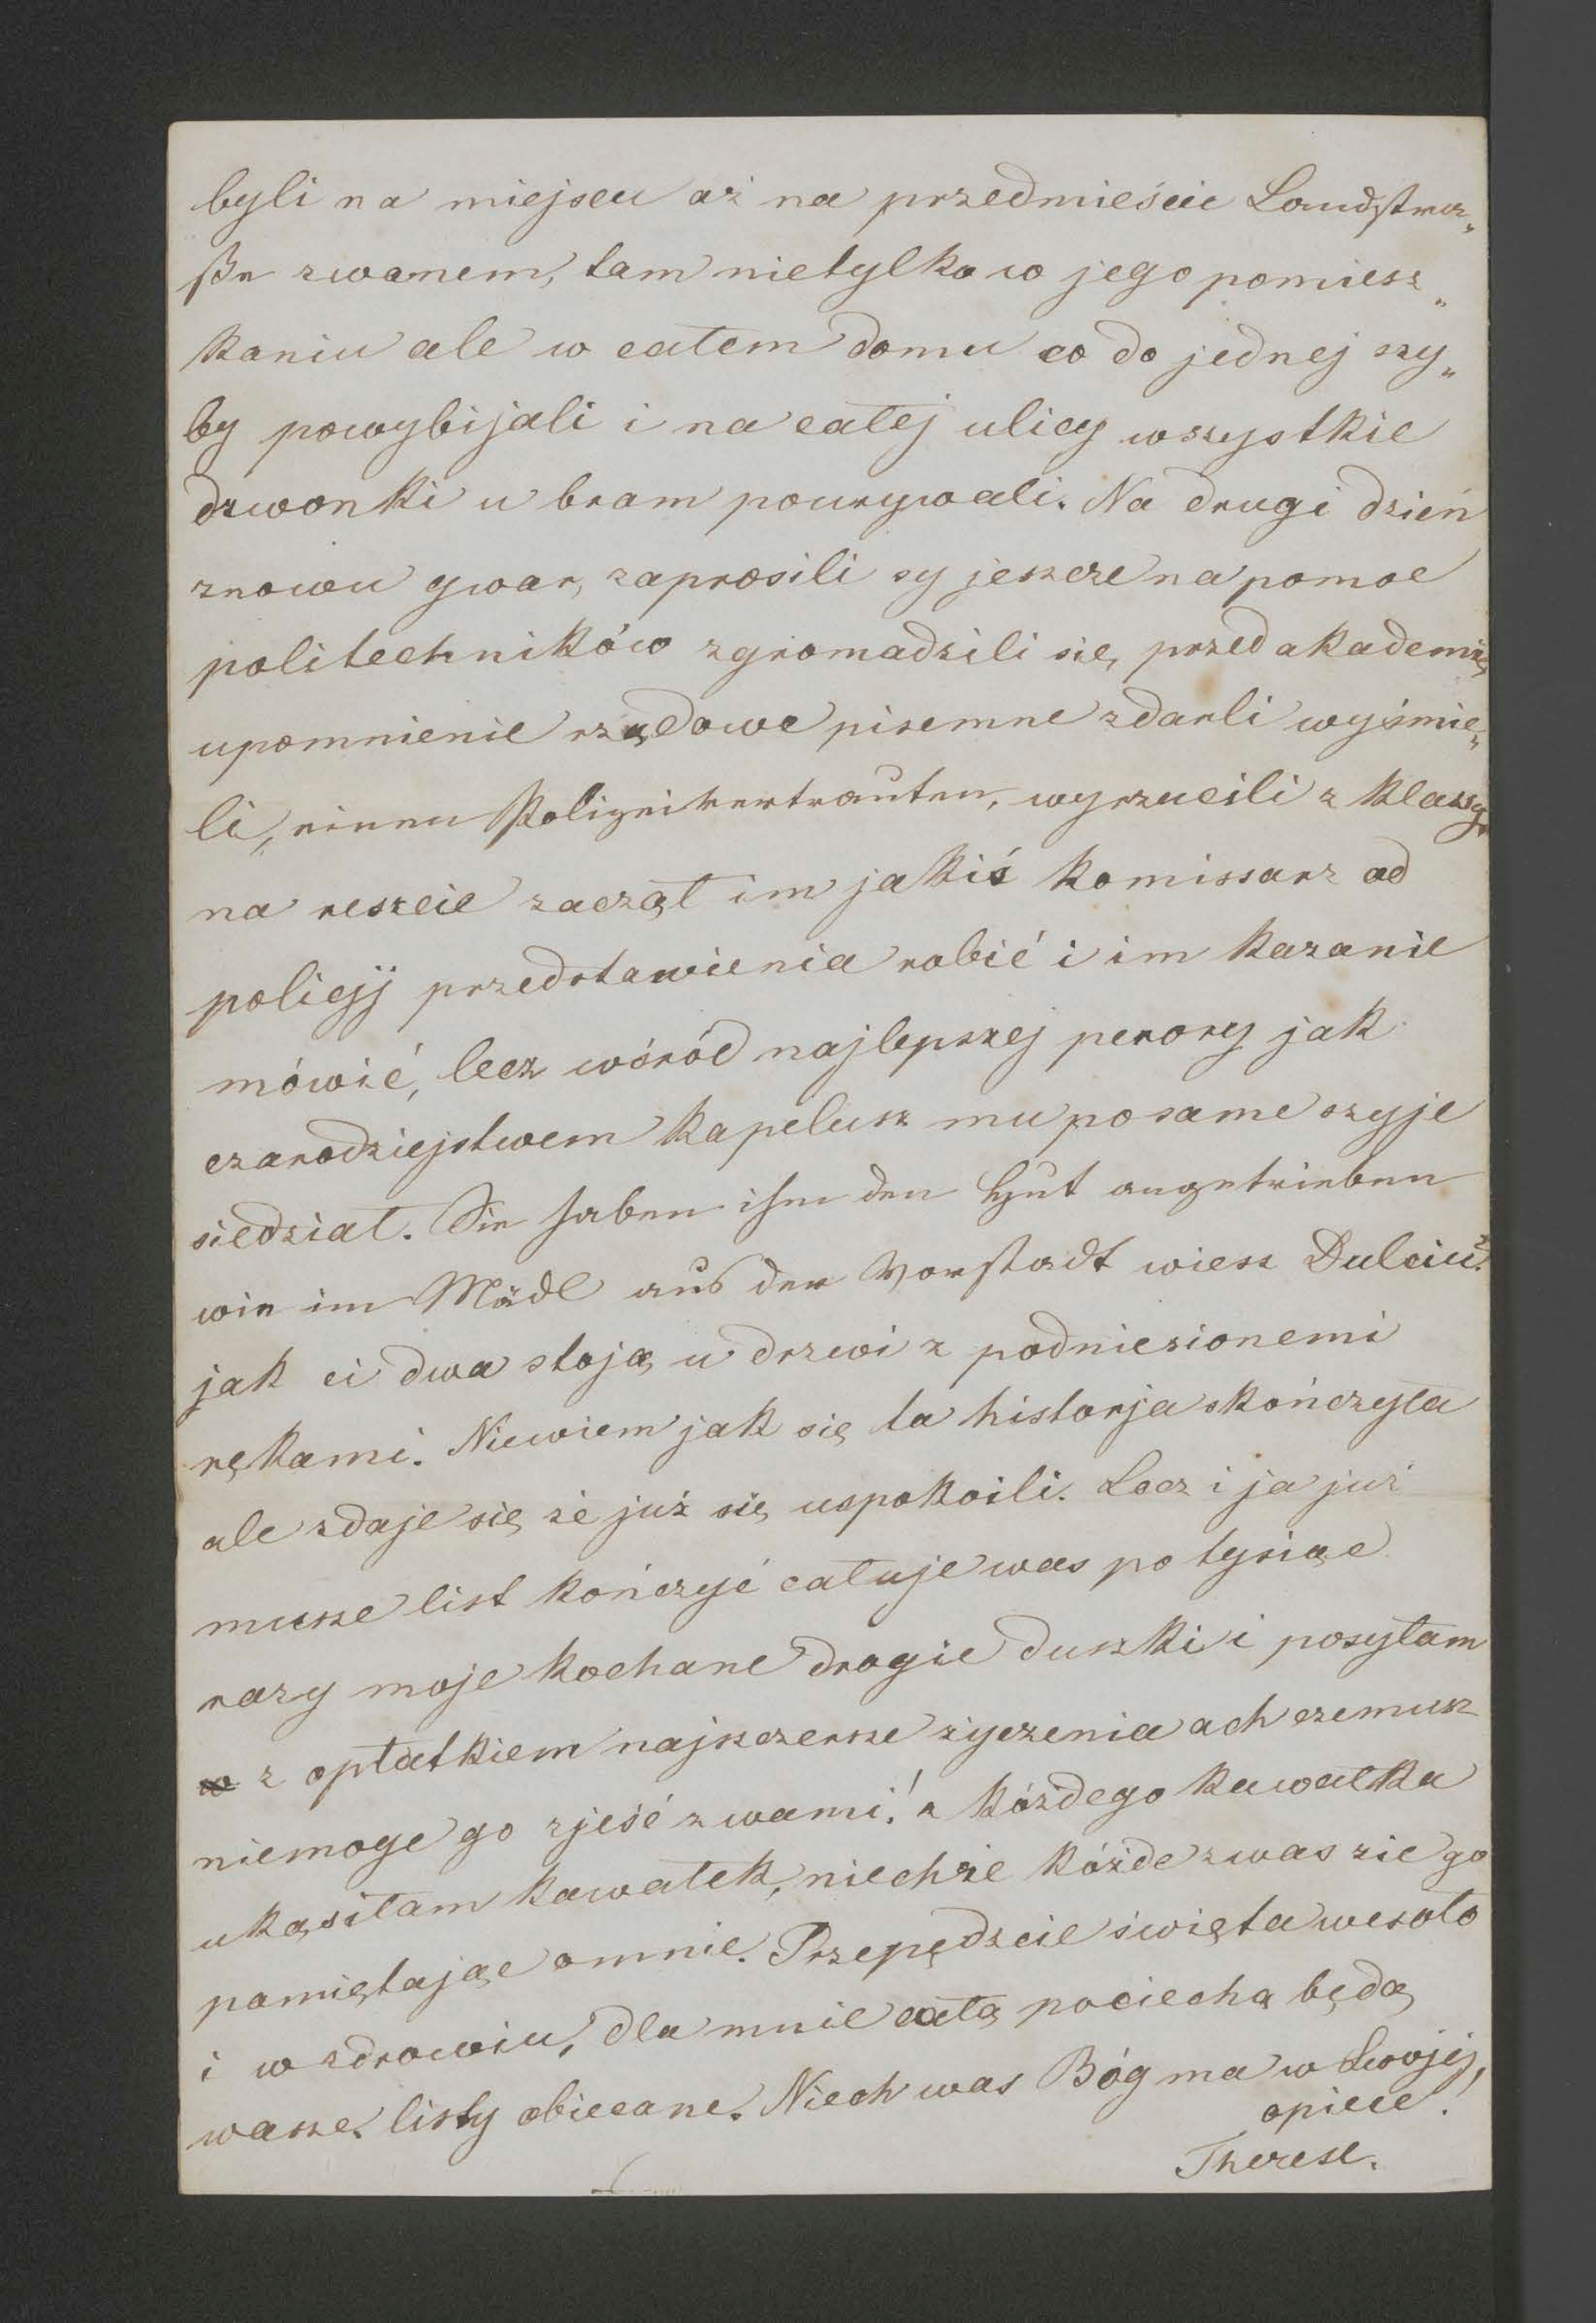 byli na miejscu aż na przedmieście Landstra„
ße zwanem, tam nietylko w jego pomiesz„
kaniu ale w całem domu co do jednej szy„
by powybijali i na całej ulicy wszystkie
dzwonki u bram pourywali. Na drugi dzień
znowu gwar, zaprosili sy jeszcze na pomoc
politechników zgromadzili się przed akademią,
upomnienie rządowe pisemne zdarli wyśmie„
li, einen Polizeivertrauten, wyrzucili z klassy.
na reszcie zaczął im jakiś komissarz od
policyj przedstawienia robić i im kazanie
mówić, lecz wśród najlepszej perory jak
czarodziejstwem kapelusz mu po same szyje
siedział. Sie haben ihm den Hut angetrieben
wie im Mädl aus der Vorstadt wiesz Dulciu?
jak ci dwa stoją u drzwi z podniesionemi
rękami. Niewiem jak się ta historja skończyła
ale zdaje się że już się uspokoili. Lecz i ja już
musze list kończyć całuje was po tysiąc
razy moje kochane drogie duszki i posyłam
w z opłatkiem najszczersze życzenia ach czemusz
niemoge go zjeść z wami! z kóżdego kawałka
ukąsiłam kawałek, niechże kóżde z was zie go
pamiętając omnie. Przepędzcie święta wesoło
i w zdrowiu, dla mnie całą pociechą będą
wasze listy obiecane. Niech was Bóg ma w Swojej,
opiece!
Therese.